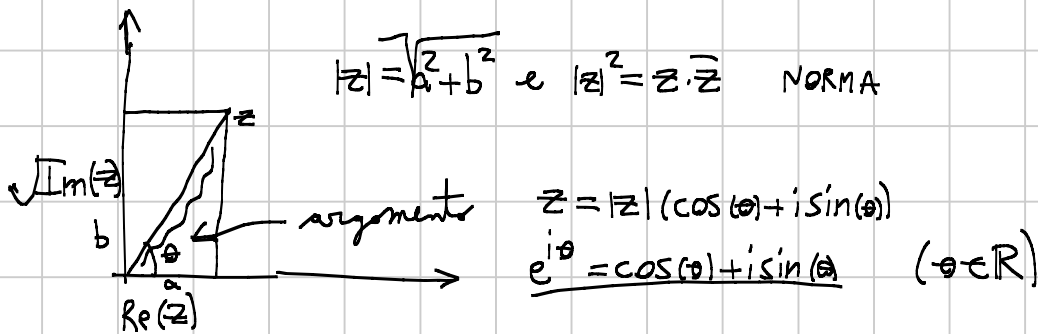 |z| = √a²+b² e |z|² = z·z̅ NORMA
z
Im(z)
argomento
z = |z| (cos(θ) + i sin(θ))
b
θ
a
e^{iθ} = cos(θ) + i sin(θ) (θ ∈ ℝ)
Re(z)